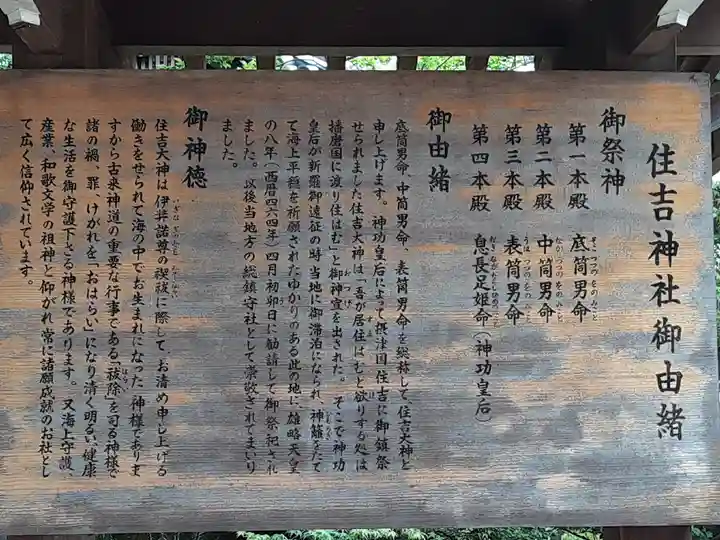 住吉神社御由緒
御祭神
第一本殿 底筒男命
第二本殿 中筒男命
第三本殿 表筒男命
第四本殿 息長足姫命(神功皇后)
御由緒
底筒男命、中筒男命、表筒男命を総称して、住吉大神と
申し上げます。神功皇后によって摂津国住吉に御鎮祭
せられました住吉大神は「吾が居住はむと欲りする処は
播磨国に渡り住はむ」と御神宣を出された。そこで神功
皇后が新羅御遠征の時当地に御滞泊になられ、神籬をたて
て海上平穏を祈願されたゆかりのある此の地に、雄略天皇
の八年(西暦四六四年)四月初卯日に勧請して御祭祀され
ました。以後当地方の総鎮守社として崇敬されてまいり
ました。
御神徳
住吉大神は伊弉諾尊の禊祓に際して、お清め申し上げる
働きをせられて海の中でお生まれになった神様でありま
すから古来神道の重要な行事である「祓除」を司る神様で
諸の禍、罪、けがれを「おはらい」になり清く明るい、健康
な生活を御守護下さる神様であります。又海上守護、
産業、和歌文学の祖神と仰がれ常に諸願成就のお社とし
て広く信仰されています。